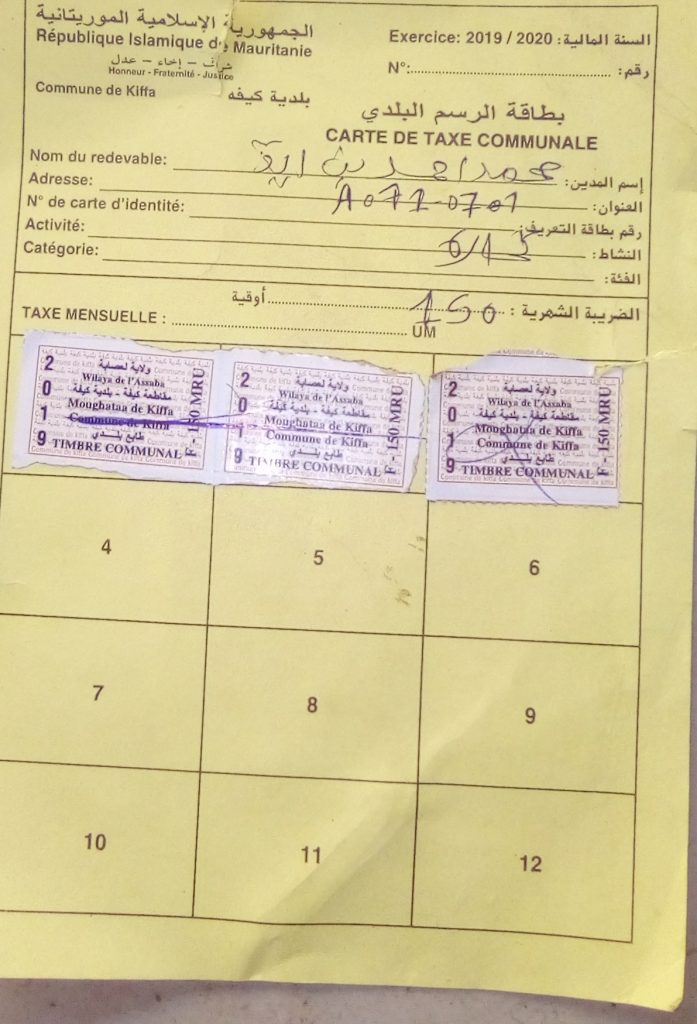 الجمهورية الإسلامية الموريتانية
République Islamique de Mauritanie
شرف - إخاء - عدل
Honneur - Fraternité - Justice
Commune de Kiffa بلدية كيفه
Exercice: 2019 / 2020 السنة المالية:
N°: رقم:
بطاقة الرسم البلدي
CARTE DE TAXE COMMUNALE
Nom du redevable: محمد احمد إسم المدين:
Adresse: A071-0701 العنوان:
N° de carte d'identité: رقم بطاقة التعريف:
Activité: النشاط:
Catégorie: الفئة:
الضريبة الشهرية: 150 أوقية
TAXE MENSUELLE : UM
2019
ولاية لعصابة
Wilaya de l'Assaba
مقاطعة كيفة - بلدية كيفة
Moughataa de Kiffa
Commune de Kiffa
طابع بلدي
TIMBRE COMMUNAL
F - 150 MRU
2019
ولاية لعصابة
Wilaya de l'Assaba
مقاطعة كيفة - بلدية كيفة
Moughataa de Kiffa
Commune de Kiffa
طابع بلدي
TIMBRE COMMUNAL
F - 150 MRU
2019
ولاية لعصابة
Wilaya de l'Assaba
مقاطعة كيفة - بلدية كيفة
Moughataa de Kiffa
Commune de Kiffa
طابع بلدي
TIMBRE COMMUNAL
F - 150 MRU
4 5 6
7 8 9
10 11 12